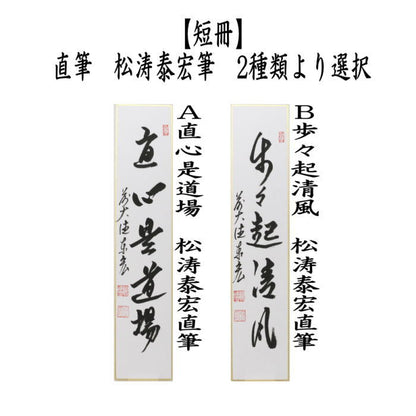 【短冊】
直筆　松涛泰宏筆　2種類より選択
B歩々起清風　松涛泰宏直筆
歩々起清風
A直心是道場　松涛泰宏直筆
直心是道場